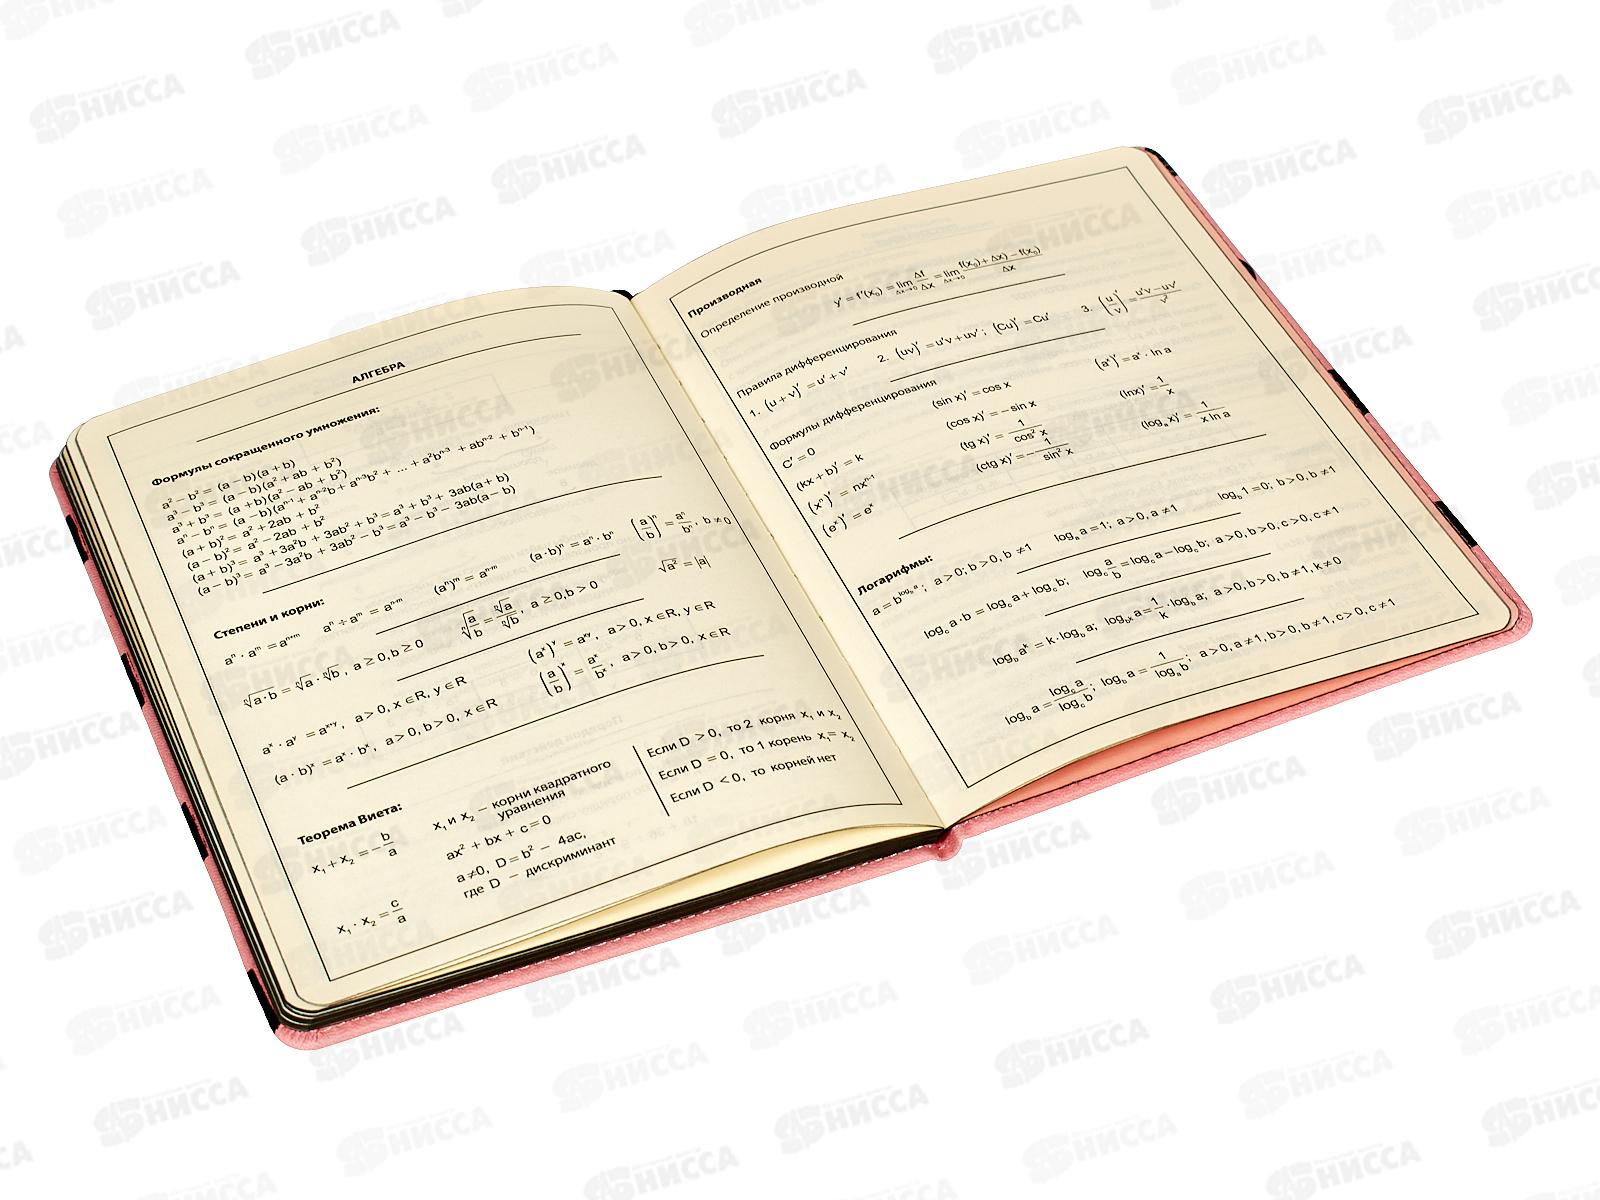 АЛГЕБРА
Формулы сокращенного умножения:
a² − b² = (a − b)(a + b)
a³ − b³ = (a − b)(a² + ab + b²)
a³ + b³ = (a + b)(a² − ab + b²)
aⁿ − bⁿ = (a − b)(aⁿ⁻¹ + aⁿ⁻²b + aⁿ⁻³b² + ... + a²bⁿ⁻³ + abⁿ⁻² + bⁿ⁻¹)
(a + b)² = a² + 2ab + b²
(a − b)² = a² − 2ab + b²
(a + b)³ = a³ + 3a²b + 3ab² + b³ = a³ + b³ + 3ab(a + b)
(a − b)³ = a³ − 3a²b + 3ab² − b³ = a³ − b³ − 3ab(a − b)
Степени и корни:
aⁿ · aᵐ = aⁿ⁺ᵐ aⁿ ÷ aᵐ = aⁿ⁻ᵐ (aⁿ)ᵐ = aⁿ·ᵐ (a · b)ⁿ = aⁿ · bⁿ (a/b)ⁿ = aⁿ/bⁿ, b ≠ 0
ⁿ√(a · b) = ⁿ√a · ⁿ√b, a ≥ 0, b ≥ 0 ⁿ√(a/b) = ⁿ√a/ⁿ√b, a ≥ 0, b > 0 √a² = |a|
aˣ · aʸ = aˣ⁺ʸ, a > 0, x ∈ R, y ∈ R (aˣ)ʸ = aˣʸ, a > 0, x ∈ R, y ∈ R
(a · b)ˣ = aˣ · bˣ, a > 0, b > 0, x ∈ R (a/b)ˣ = aˣ/bˣ, a > 0, b > 0, x ∈ R
Теорема Виета:
x₁ + x₂ = −b/a
x₁ · x₂ = c/a
x₁ и x₂ − корни квадратного
уравнения
ax² + bx + c = 0
a ≠ 0, D = b² − 4ac,
где D − дискриминант
Если D > 0, то 2 корня x₁ и x₂
Если D = 0, то 1 корень x₁ = x₂
Если D < 0, то корней нет
Производная
Определение производной
y′ = f′(x₀) = lim Δx→0 Δf/Δx = lim Δx→0 (f(x₀) + Δx) − f(x₀)/Δx
Правила дифференцирования
1. (u + v)′ = u′ + v′ 2. (uv)′ = u′v + uv′; (Cu)′ = Cu′ 3. (u/v)′ = (u′v − uv′)/v²
Формулы дифференцирования
C′ = 0
(kx + b)′ = k
(xⁿ)′ = nxⁿ⁻¹
(eˣ)′ = eˣ
(sin x)′ = cos x
(cos x)′ = − sin x
(tg x)′ = 1/cos² x
(ctg x)′ = −1/sin² x
(aˣ)′ = aˣ · ln a
(lnx)′ = 1/x
(logₐ x)′ = 1/(x ln a)
Логарифмы:
a = b^(log_b a); a > 0; b > 0, b ≠ 1 log_a a = 1; a > 0, a ≠ 1 log_b 1 = 0; b > 0, b ≠ 1
log_c a · b = log_c a + log_c b; log_c a/b = log_c a − log_c b; a > 0, b > 0, c > 0, c ≠ 1
log_b aᵏ = k · log_b a; log_bᵏ a = 1/k · log_b a; a > 0, b > 0, b ≠ 1, k ≠ 0
log_b a = log_c a/log_c b; log_b a = 1/log_a b; a > 0, a ≠ 1, b > 0, b ≠ 1, c > 0, c ≠ 1
НИССА